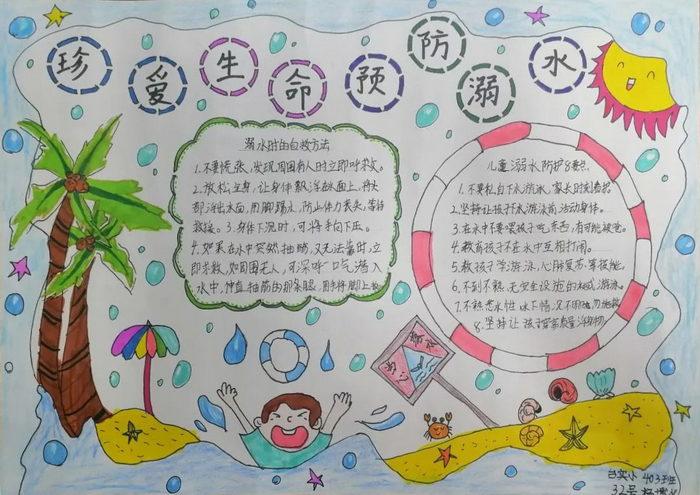 珍爱生命预防溺水
溺水时的自救方法
1.不要慌张,发现周围有人时立即呼救。
2.放松全身,让身体飘浮在水面上,将头
部浮出水面,用脚踢水,防止体力丧失,等待
救援。3.身体下沉时,可将手向下压。
4.如果在水中突然抽筋,又无法靠岸时,立
即求救,如周围无人,可深呼吸潜入
水中,伸直抽筋的那条腿,用手将脚上
儿童溺水防护8要点
1.不要私自下水游泳,家长时刻看
2.坚持让孩子下水游泳前活动身体。
3.在水中不要喂孩子吃东西,有可能被呛。
4.教育孩子不在水中互相打闹。
5.教孩子学游泳,心肺复苏等技能。
6.不到不熟,无安全设施的水域游泳。
7.不熟悉水性
8.坚持让孩子穿高质量浮物
禁止
台实小403班
32号